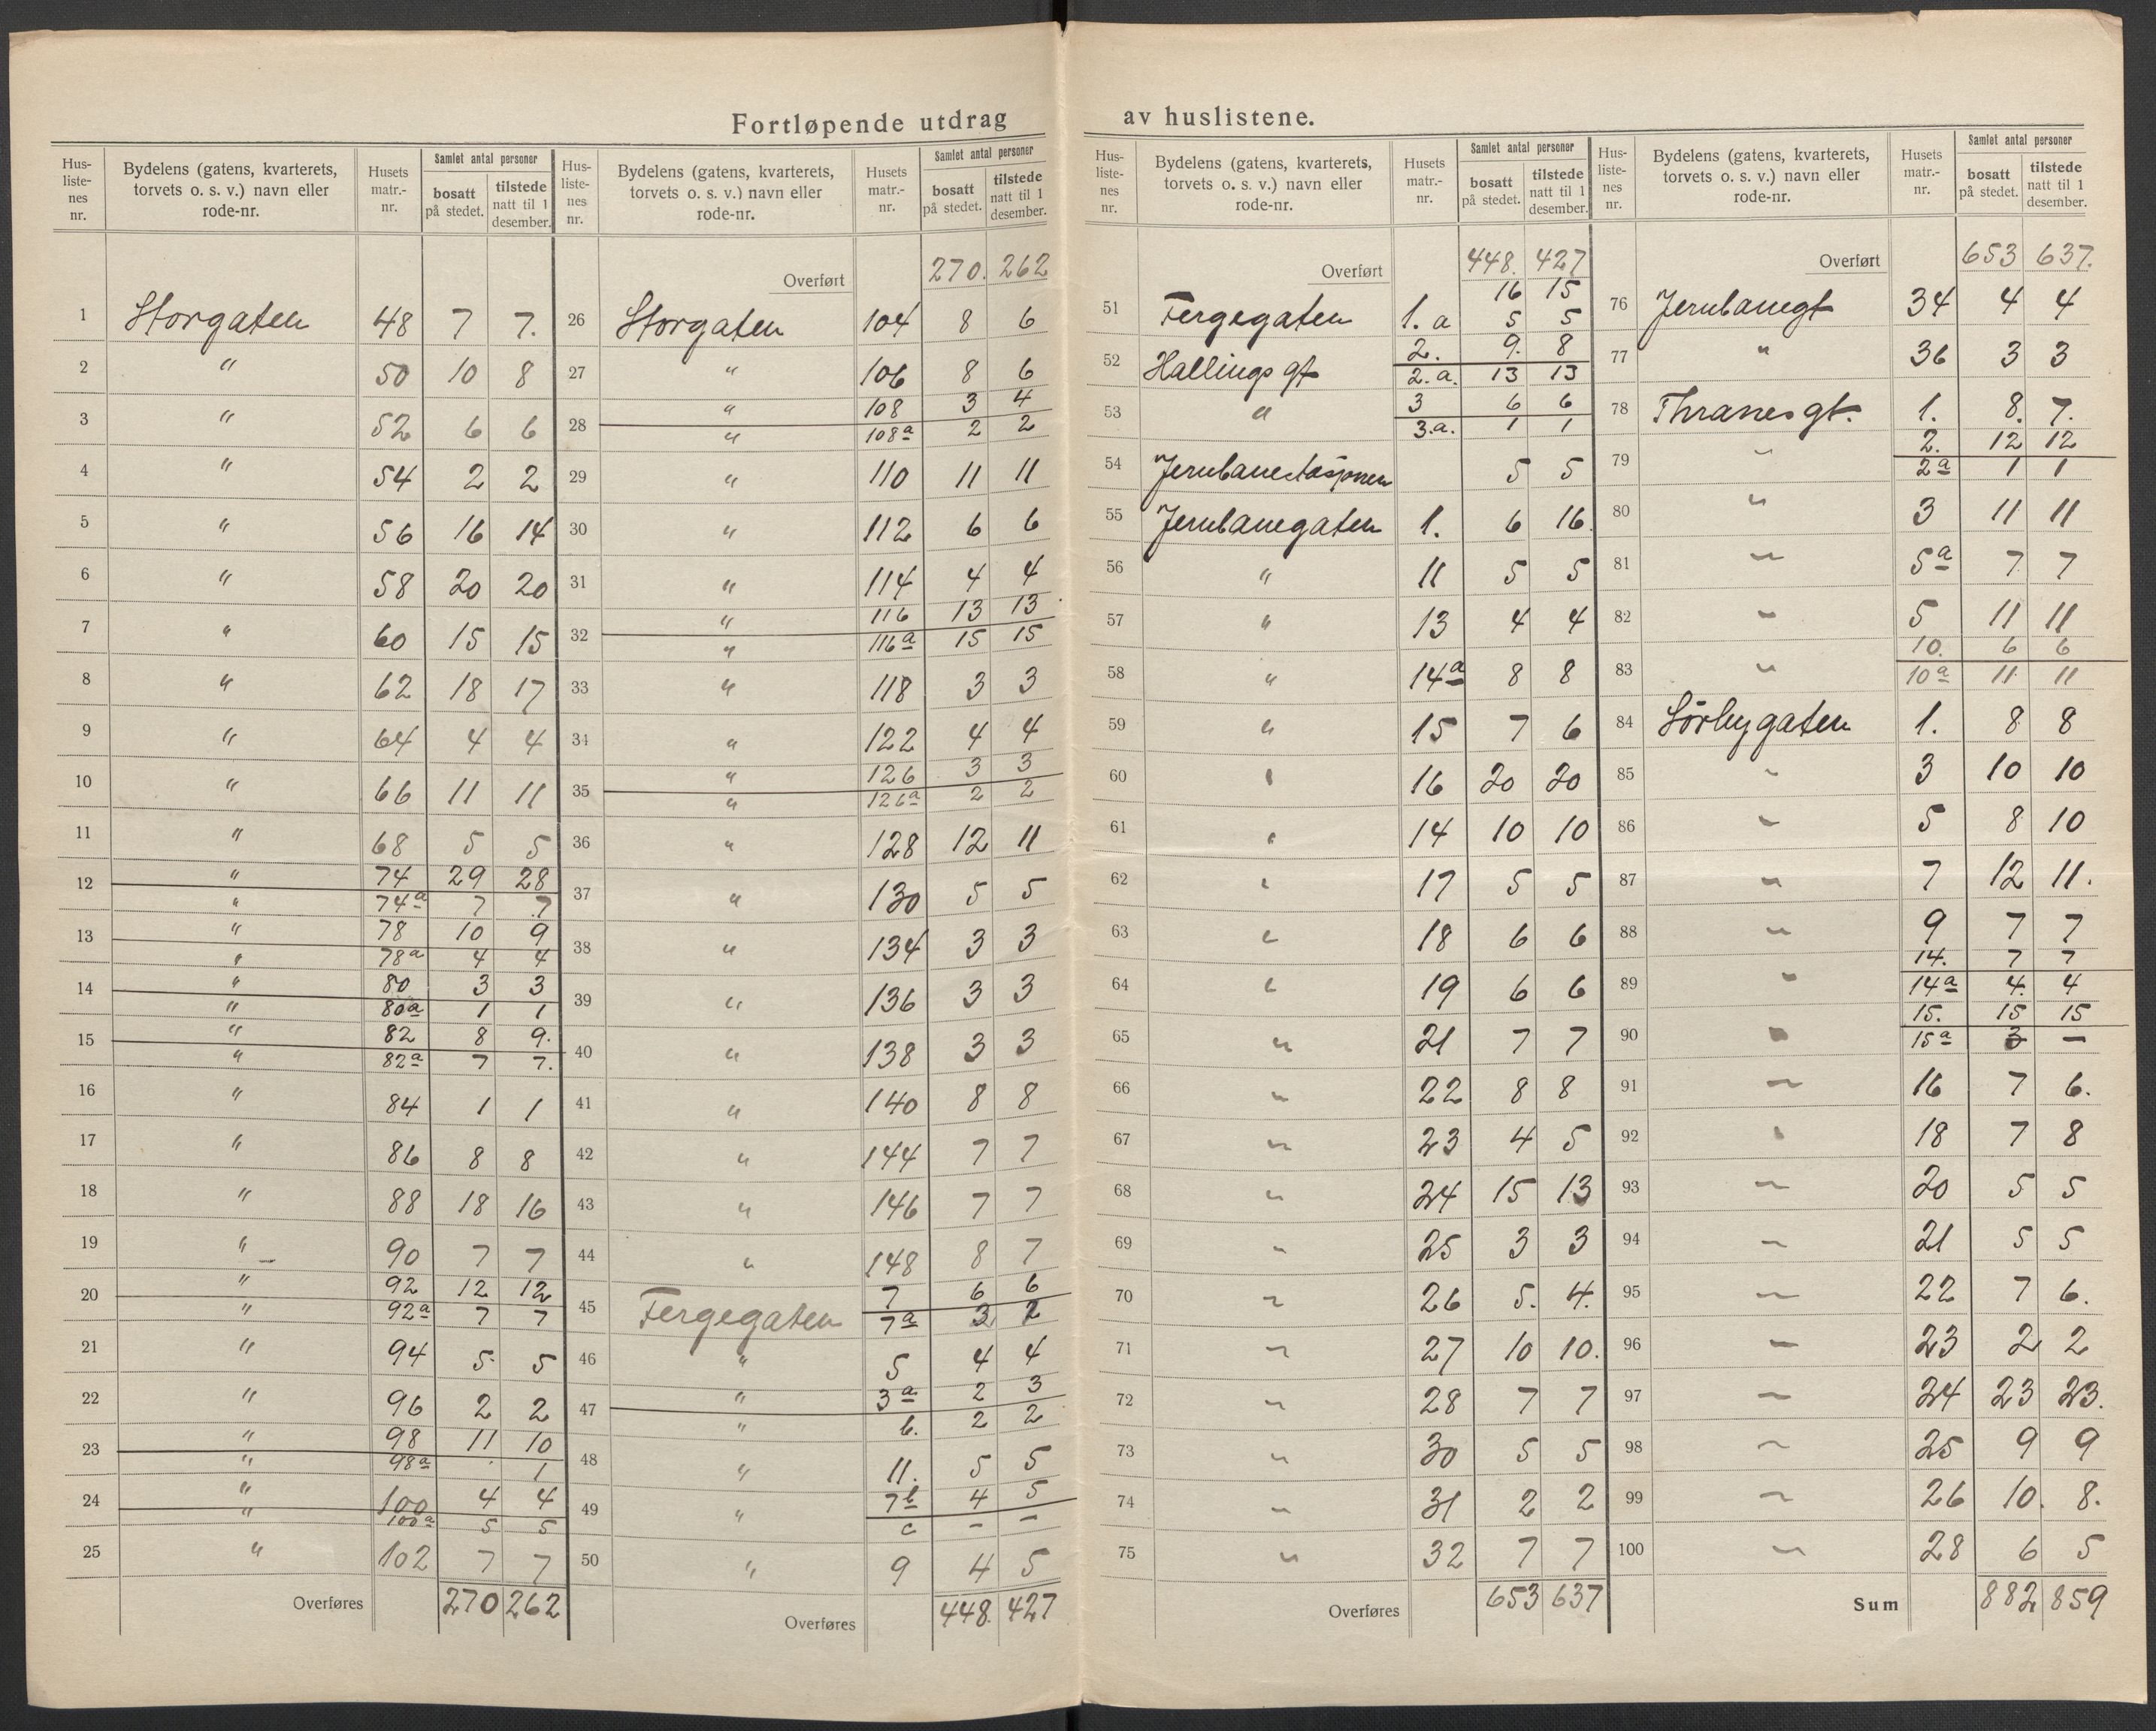 Fortløpende utdrag av huslistene.
Hus-listenes nr. Bydelens (gatens, kvarterets, torvets o. s. v.) navn eller rode-nr. Husets matr.-nr. Samlet antal personer bosatt på stedet. tilstede natt til 1 desember.
1 Storgaten 48 7 7.
2 " 50 10 8
3 " 52 6 6
4 " 54 2 2
5 " 56 16 14
6 " 58 20 20
7 " 60 15 15
8 " 62 18 17
9 " 64 4 4
10 " 66 11 11
11 " 68 5 5
12 " 74 29 28
" 74a 7 7
13 " 78 10 9
" 78a 4 4
14 " 80 3 3
" 80a 1 1
15 " 82 8 9.
" 82a 7 7.
16 " 84 1 1
17 " 86 8 8
18 " 88 18 16
19 " 90 7 7
20 " 92 12 12
" 92a 7 7
21 " 94 5 5
22 " 96 2 2
23 " 98 11 10
" 98a . 1
24 " 100 4 4
" 100a 5 5
25 " 102 7 7
Overføres 270 262
Hus-listenes nr. Bydelens (gatens, kvarterets, torvets o. s. v.) navn eller rode-nr. Husets matr.-nr. Samlet antal personer bosatt på stedet. tilstede natt til 1 desember.
Overført 270. 262
26 Storgaten 104 8 6
27 " 106 8 6
28 " 108 3 4
" 108a 2 2
29 " 110 11 11
30 " 112 6 6
31 " 114 4 4
32 " 116 13 13
" 116a 15 15
33 " 118 3 3
34 " 122 4 4
35 " 126 3 3
" 126a 2 2
36 " 128 12 11
37 " 130 5 5
38 " 134 3 3
39 " 136 3 3
40 " 138 3 3
41 " 140 8 8
42 " 144 7 7
43 " 146 7 7
44 " 148 8 7
45 Fergegaten 7 6 6
7a 3 2
46 " 5 4 4
47 " 3a 2 3
" b. 2 2
48 " 11. 5 5
49 " 7b 4 5
c - -
50 " 9 4 5
Overføres 448. 427
Hus-listenes nr. Bydelens (gatens, kvarterets, torvets o. s. v.) navn eller rode-nr. Husets matr.-nr. Samlet antal personer bosatt på stedet. tilstede natt til 1 desember.
Overført 448. 427
16 15
51 Fergegaten 1. a 5 5
52 Hallings gt 2. 9. 8
2. a. 13 13
53 " 3 6 6
3. a. 1 1
54 Jernbanestasjonen 5 5
55 Jernbanegaten 1. 6 16.
56 " 11 5 5
57 " 13 4 4
58 " 14a 8 8
59 " 15 7 6
60 " 16 20 20
61 " 14 10 10
62 " 17 5 5
63 " 18 6 6
64 " 19 6 6
65 " 21 7 7
66 " 22 8 8
67 " 23 4 5
68 " 24 15 13
69 " 25 3 3
70 " 26 5. 4.
71 " 27 10 10.
72 " 28 7 7
73 " 30 5 5
74 " 31 2 2
75 " 32 7 7
Overføres 653 637
Hus-listenes nr. Bydelens (gatens, kvarterets, torvets o. s. v.) navn eller rode-nr. Husets matr.-nr. Samlet antal personer bosatt på stedet. tilstede natt til 1 desember.
Overført 653 637.
76 Jernbanegt 34 4 4
77 " 36 3 3
78 Thranes gt. 1. 8. 7.
79 " 2. 12 12
2a 1 1
80 " 3 11 11
81 " 5a 7 7
82 " 5 11 11
83 " 10. 6 6
10a 11 11
84 Sörbygaten 1. 8 8
85 " 3 10 10
86 " 5 8 10
87 " 7 12 11.
88 " 9 7 7
89 " 14. 7 7
14a 4. 4
90 " 15. 15 15
15a 3 -
91 " 16 7 6.
92 " 18 7 8
93 " 20 5 5
94 " 21 5 5
95 " 22 7 6.
96 " 23 2 2
97 " 24 23 23.
98 " 25 9 9
99 " 26 10. 8.
100 " 28 6 5
Sum 882 859